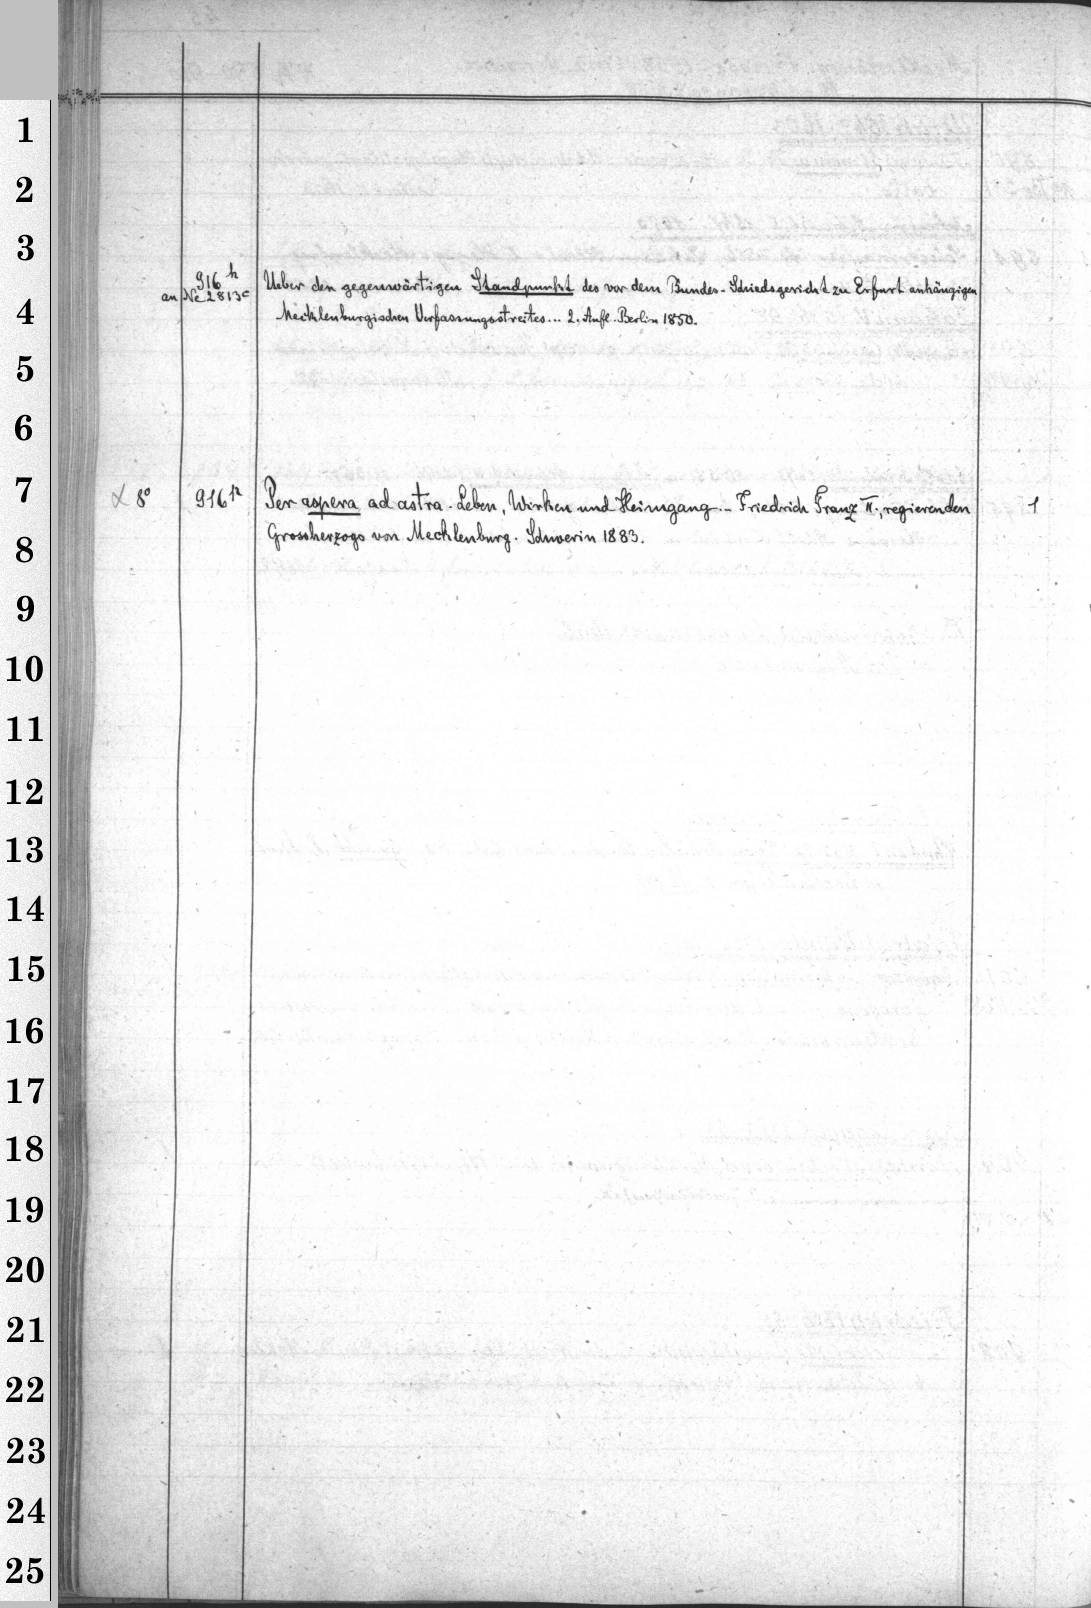 1
2
3
916 h
an Ne 2813 c Ueber den gegenwärtigen Standpunkt des vor dem Bundes-Schiedsgericht zu Erfurt anhängigen
4 Mecklenburgischen Verfassungsstreites... 2. Aufl. Berlin 1850.
5
6
7 8° 916 k Per aspera ad astra. Leben, Wirken und Heimgang... Friedrich Franz II., regierenden 1
8 Grossherzogs von Mecklenburg. Schwerin 1883.
9
10
11
12
13
14
15
16
17
18
19
20
21
22
23
24
25